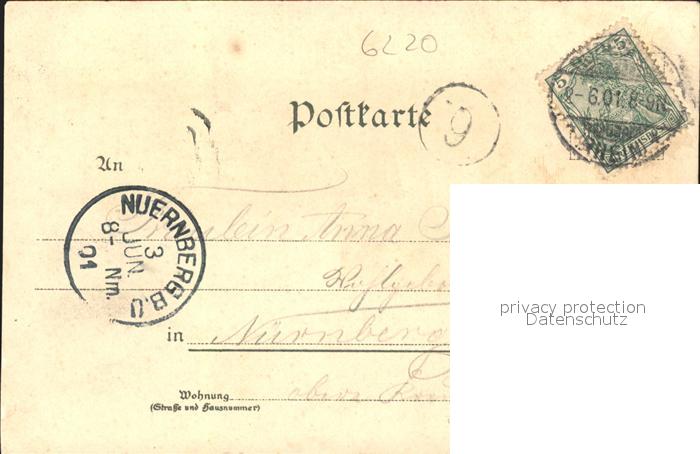 6220
5 5
- 6.01. 8-9
RHEIN
Postkarte
6
An
NUERNBERG B.Ü.
3
JUN.
8- Nm.
01
Fräulein Anna
in Nürnberg
obere
Wohnung
(Straße und Hausnummer)
privacy protection
Datenschutz